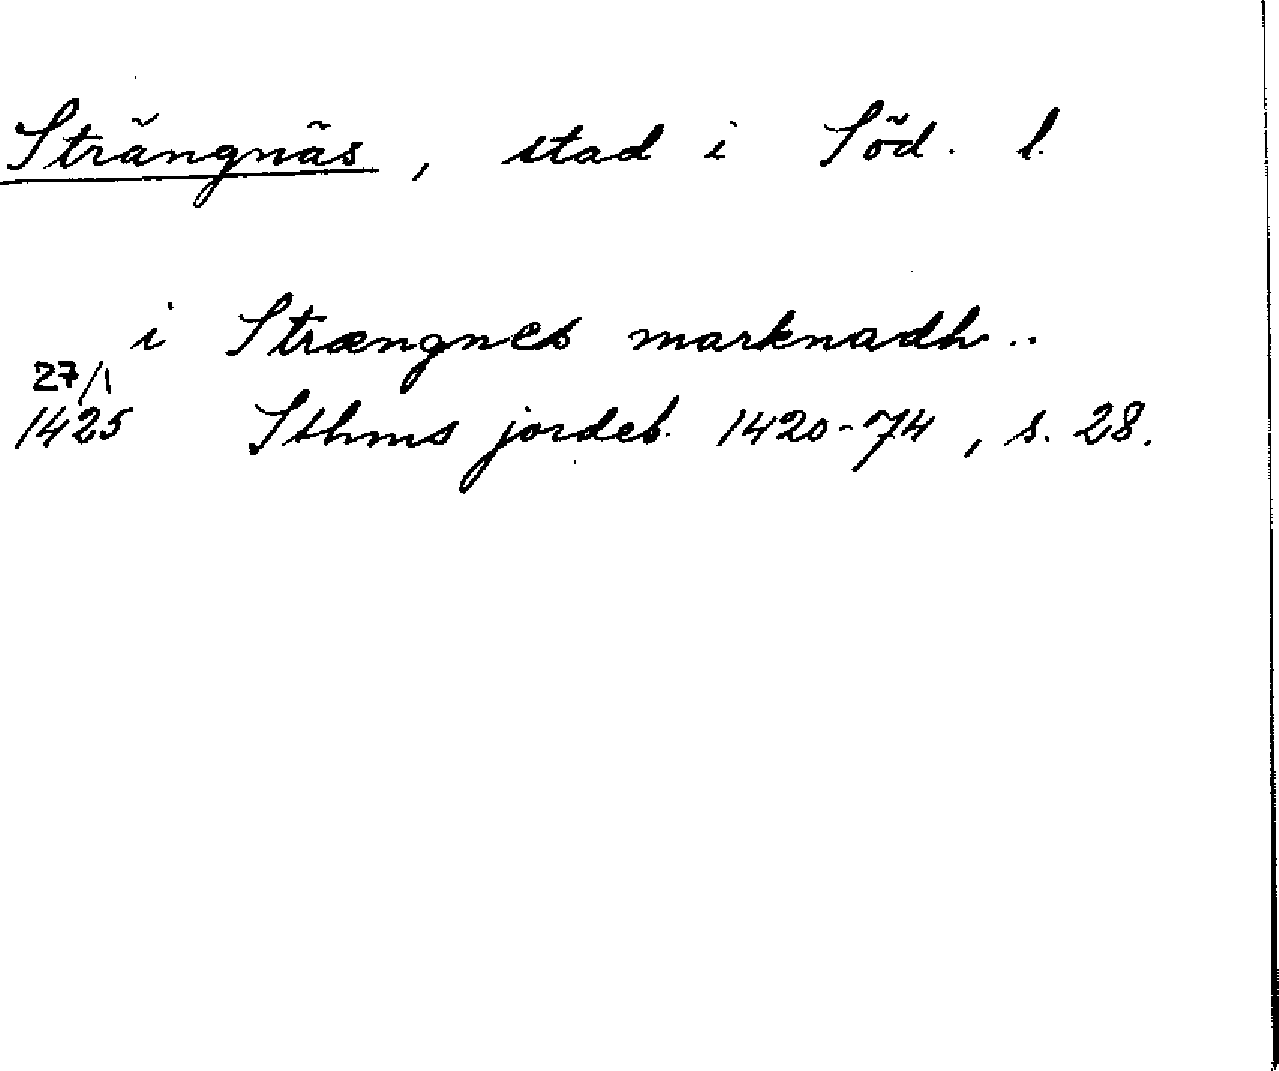 Strängnäs, stad i Söd. l.
i Strængnes marknadh..
27/1
1425 Sthms jordeb. 1420-74, s. 28.